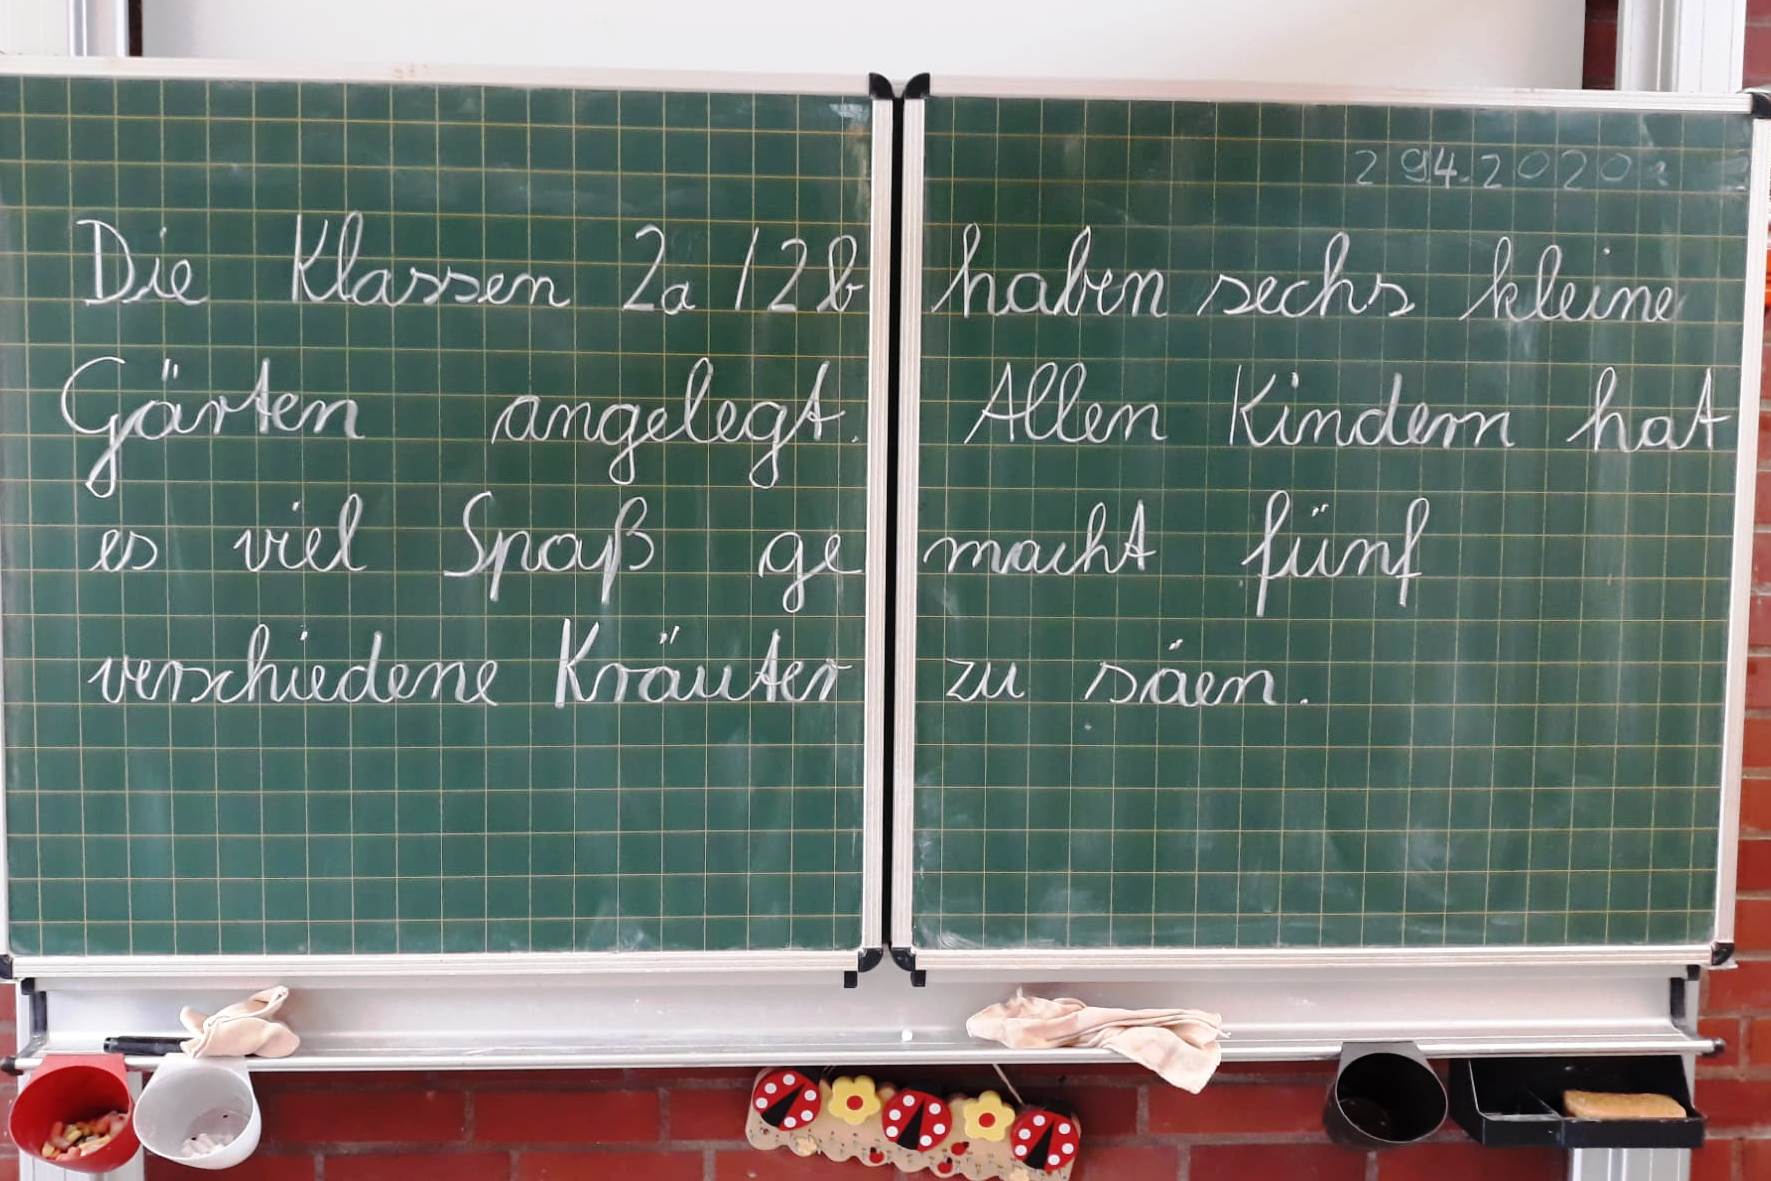 29.4.2020
Die Klassen 2a/2b haben sechs kleine
Gärten angelegt. Allen Kindern hat
es viel Spaß gemacht fünf
verschiedene Kräuter zu säen.